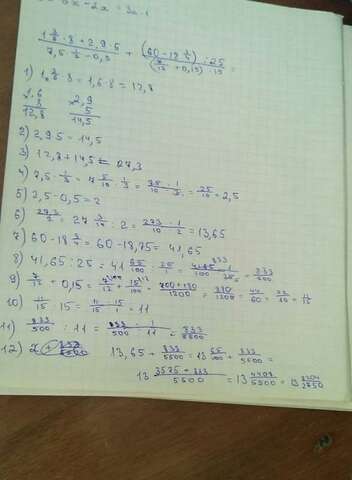 1 3/5 · 8 + 2,9 · 5
7,5 · 1/3 - 0,5
+
: 25
+ 0,15) · 15
=
1) 1 3/5 · 8 = 1,6 · 8 = 12,8
1,6
8
12,8
× 2,9
5
14,5
2) 2,9 5 = 14,5
3) 12,8 + 14,5 = 27,3
4) 7,5 · 1/3 = 7 5/10 · 1/3 = 75/10 · 1/3 = 25/10 = 2,5
5) 2,5 - 0,5 = 2
6) 27,3/2 = 27 3/10 : 2 = 273/10 · 1/2 = 13,65
7) 60 - 18 3/4 = 60 - 18,75 = 41,65
8) 41,65 : 25 = 41 65/100 : 25/1 = 4165/100 · 1/25 = 833/500
9) 7/12 + 0,15 = 7/12 + 15/100 =
10) 11/15 · 15 = 11/15 · 15/1 = 11
11) 833/500 : 11 = 833/500 · 1/11 = 833/5500
12)
13,65 + 833/5500 = 13 65/100 + 833/5500 =
13 3575 + 833/5500 = 13 4408/5500 = 13